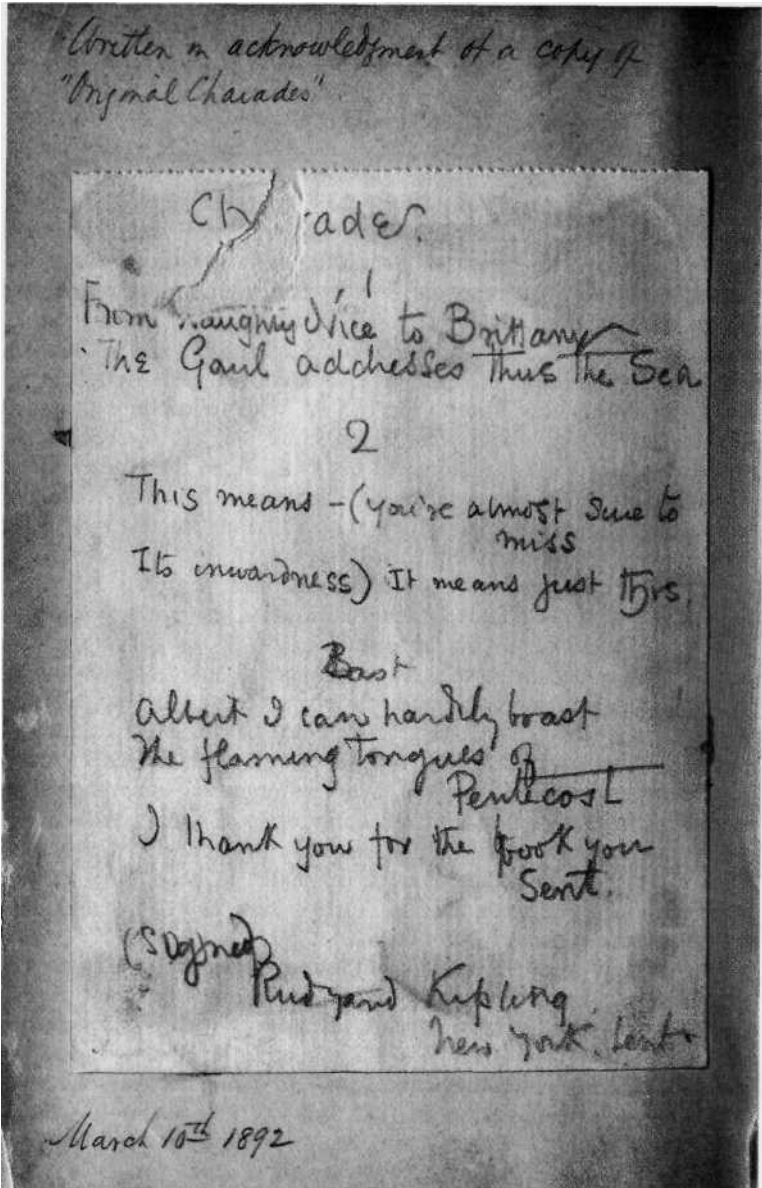 "Written in acknowledgment of a copy of
"Original Charades"
Charade.
1
From naughty Nice to Brittany
The Gaul addresses thus the Sea
2
This means - (you're almost sure to
miss
Its inwardness) It means just this.
Albeit I can hardily boast
The flaming tongues of
Pentecost
I thank you for the book you
Sent.
(Signed)
Rudyard Kipling
New York. Lent
March 10th 1892